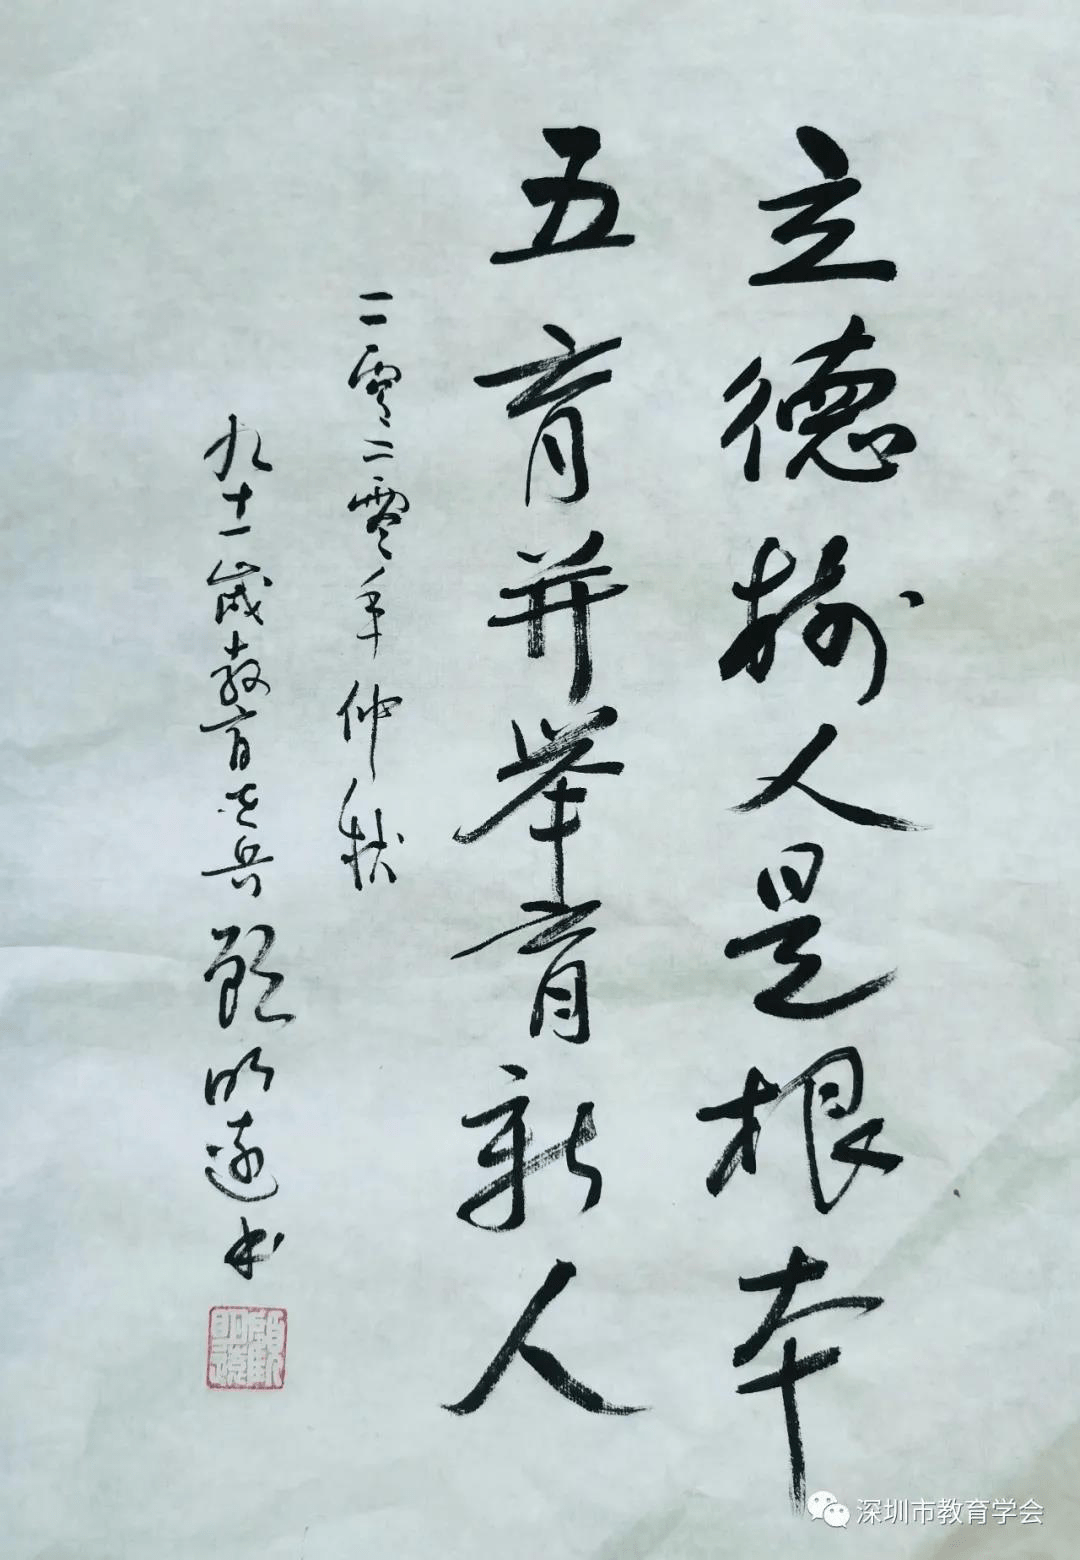 立德树人是根本
五育并举育新人
二零二零年仲秋
九十一岁教育老兵顾明远书
顧明遠
深圳市教育学会